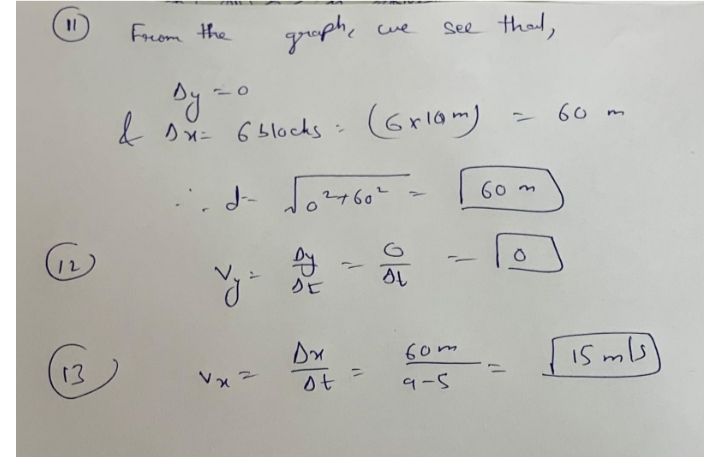 11 From the graph, we see that,
Δy = 0
& Δx = 6 blocks = (6x10m) = 60 m
∴ d = √0²+60² = 60 m
12 Vy = Δy/Δt = 0/Δt = 0
13 Vx = Δx/Δt = 60m/9-5 = 15 m/s